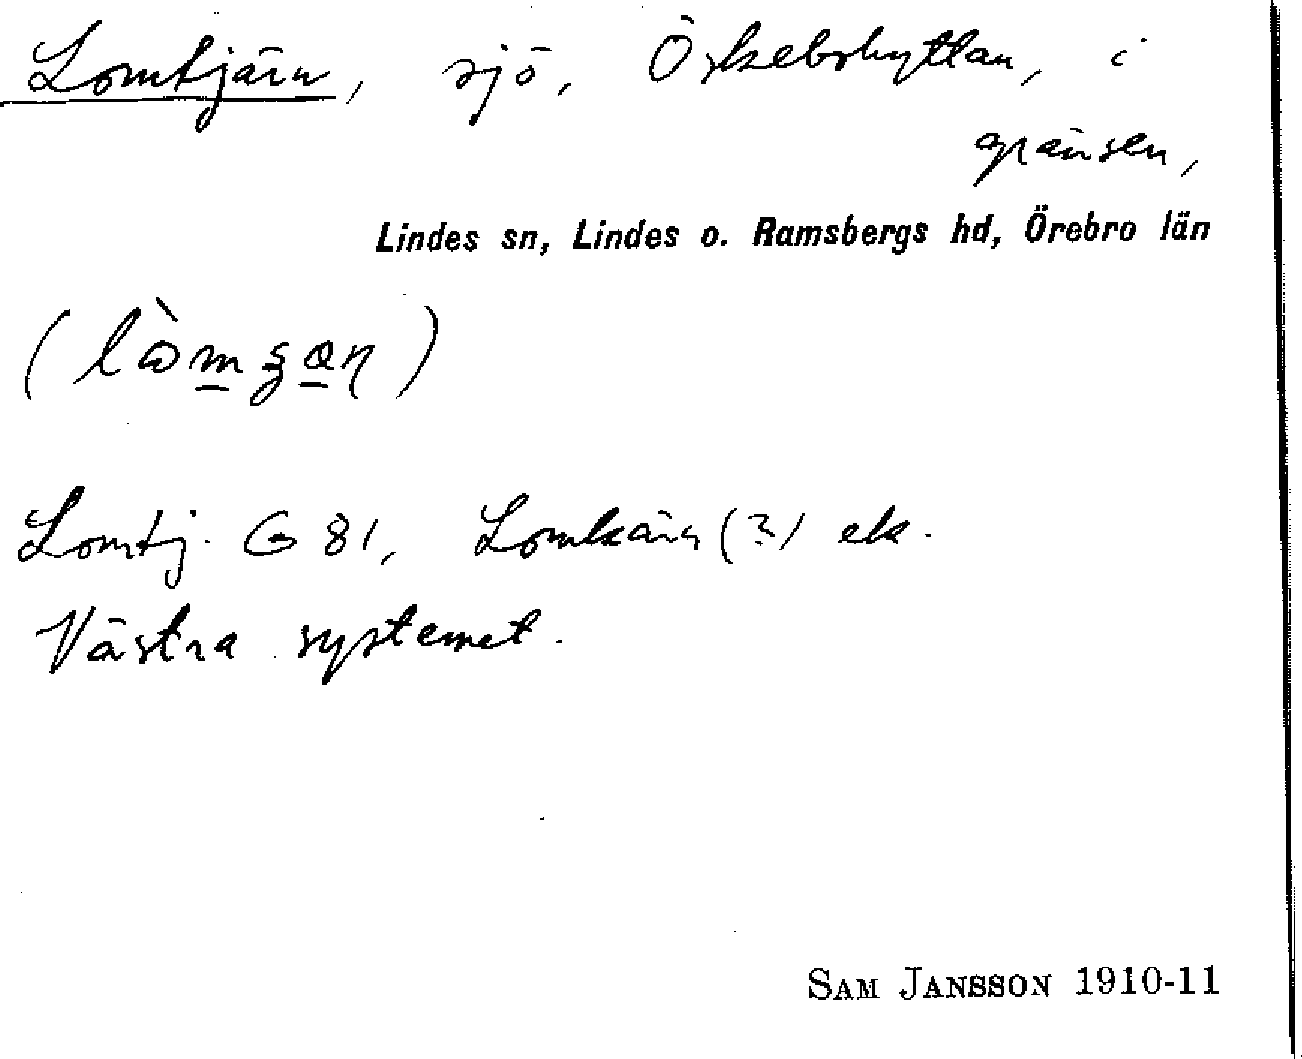 Lomtjärn, sjö, Öskebohyttan, i
gränsen,
Lindes sn, Lindes o. Ramsbergs hd, Örebro län
Lomtj. G 81, Lomkärn (?) ek.
Västra systemet.
SAM JANSSON 1910-11